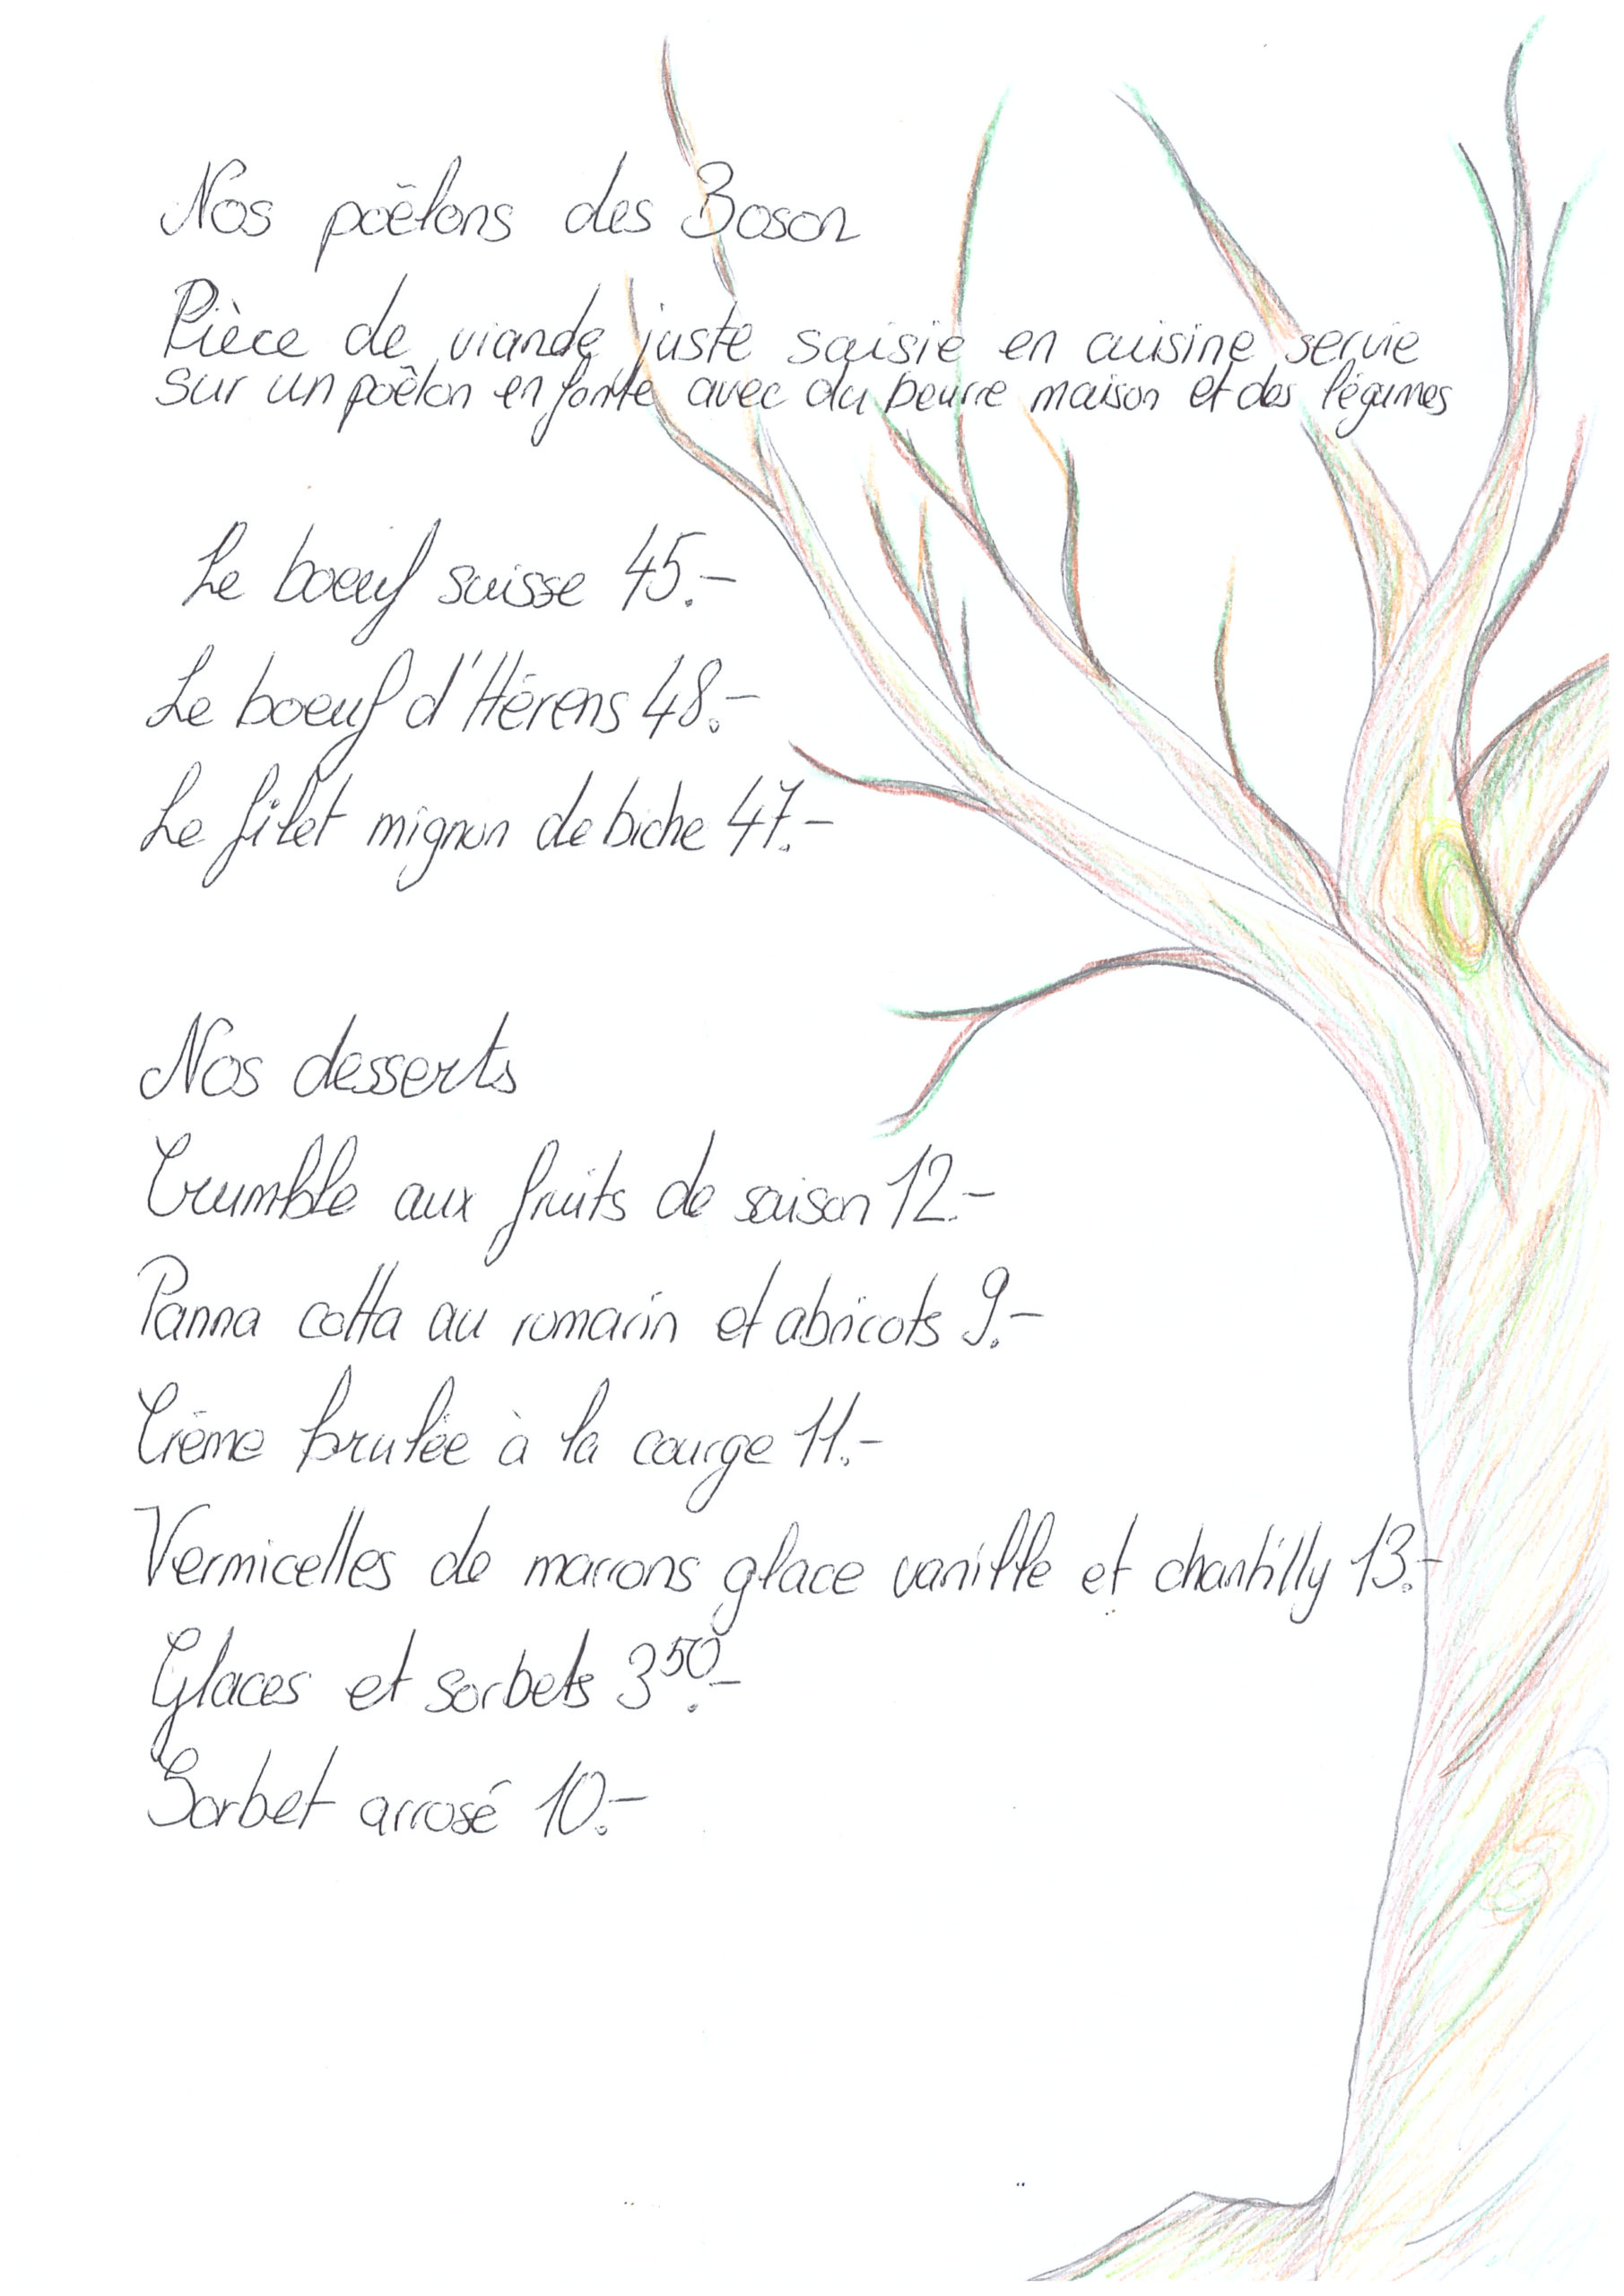 Nos poêlons des Boson
Pièce de viande juste saisie en cuisine servie
sur un poêlon en fonte avec du beurre maison et des légumes
Le boeuf suisse 45.-
Le boeuf d'Hérens 48.-
Le filet mignon de biche 47.-
Nos desserts
Crumble aux fruits de saison 12.-
Panna cotta au romarin et abricots 9.-
Crème brulée à la courge 11.-
Vermicelles de marrons glace vanille et chantilly 13.-
Glaces et sorbets 350.-
Sorbet arrosé 10.-